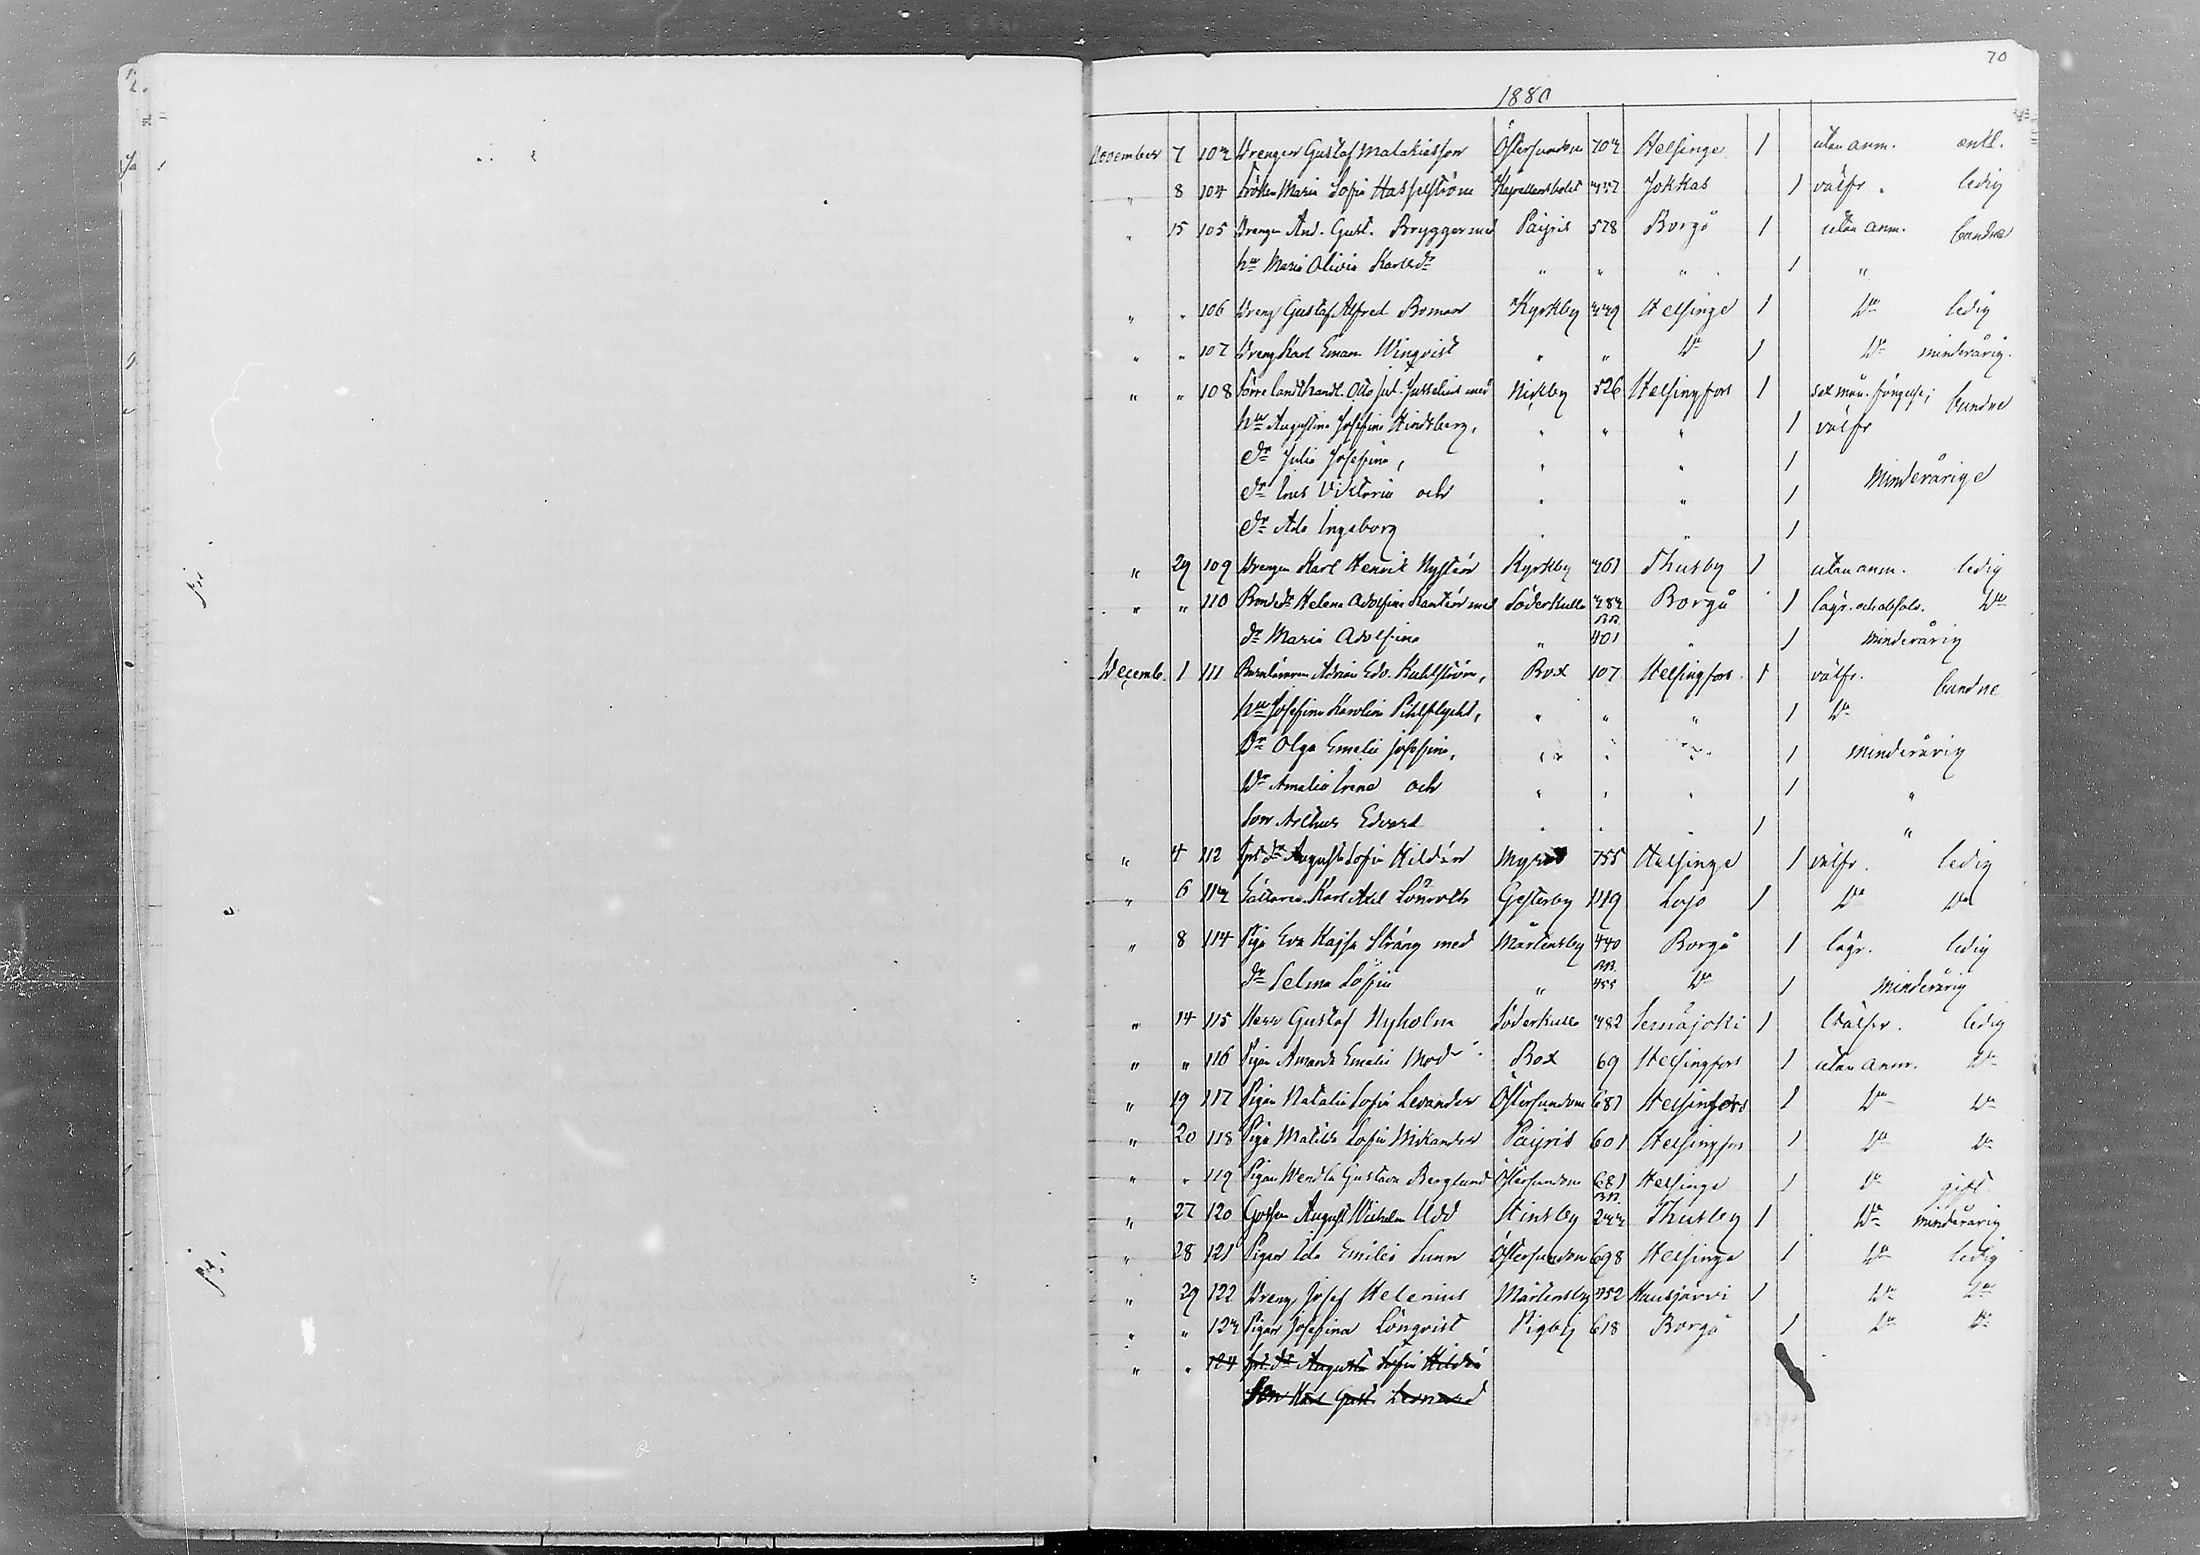 70
1880
November 7 103 Drengen Gustaf Malakiasson Östersundom 703 Helsinge 1 utan anm. enkl.
" 8 104 Fröken Maria Sofia Hasselström Kapellansbolet 457 Jokkas 1 välfr. ledig
" 15 105 Drengen And. Gust. Bryggermed Paipis 578 Borgå 1 utan anm. bundne
hu Maria Olivia Karlsdr " " " 1 "
" " 106 Dreng Gustaf Alfred Boman Kyrkby 449 Helsinge 1 Do ledig
" " 107 Dreng Karl Eman. Winqvist " " Do 1 Do minderårig.
" " 108 Förre landthandl. Otto Jul. med Nickby 526 Helsingfors 1 sex mån. fängelse; bundne
hu Augustina Josefina Hindsberg, " " " 1 välfr
dr Julia Josefina, " " 1
dr Ines Viktoria och " " 1 minderårige
dr Ada Ingeborg " " 1
" 29 109 Drengen Karl Henrik Nyström Kyrkby 461 Thusby 1 utan anm. ledig
" " 110 Bondedr Helena Adolfina med Söderkulla 484 Borgå 1 lagv. och absolv. Do
dr Maria Adolfina " 401 " 1 minderårig
Decemb. 1 111 Barnläraren Adrian Edv. Kuhlström, Box 107 Helsingfors 1 välfr. bundne
hu Josefina Karolina Pihlflycht, " " " 1 Do
Dr Olga Emelie Josefina, " " " 1 minderårig
Dr Amalia Irene och " " " 1 "
Son Arthur Edvard " " " 1 "
" 4 112 dr Augusta Sofia Hildén 755 Helsinge 1 välfr. ledig
" 6 113 Karl Axel Lönroth Gesterby 119 Lojo 1 Do Do
" 8 114 Piga Eva Kajsa Sträng med Mårtensby 440 Borgå 1 lagv. ledig
dr Selma Sofia " 455 Do 1 minderårig
" 14 115 Herr Gustaf Nyholm Söderkulla 482 Ilmajoki 1 Välfr. ledig
" " 116 Pigan Amanda Emelie Box 69 Helsingfors 1 utan anm. Do
" 19 117 Pigan Natalia Sofia Levander Östersundom 681 Helsingfors 1 Do Do
" 20 118 Piga Matilda Sofia Wikander Paipis 601 Helsingfors 1 Do Do
" " 119 Pigan Wendla Gustava Berglund Östersundom 681 Helsinge 1 Do gift.
" 27 120 Gossen August Wilhelm Udd Hindsby 244 Thusby 1 Do minderårig
" 28 121 Pigan Ida Emilia Sunn Östersundom 698 Helsinge 1 Do ledig
" 29 122 Dreng Josef Helenius Mårtensby 452 Hausjärvi 1 Do Do
" " 123 Pigan Josefina Lönqvist Pigby 618 Borgå 1 Do Do
" " 124 dr Augusta Sofia Hildén
Son Karl Gust. Leonard